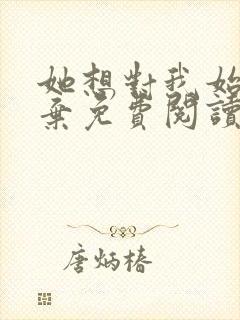 她想對我始
棄免費閱讀
唐炳椿